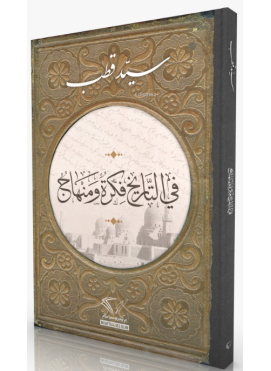 سيد قطب
في التاريخ فكرة ومنهاج